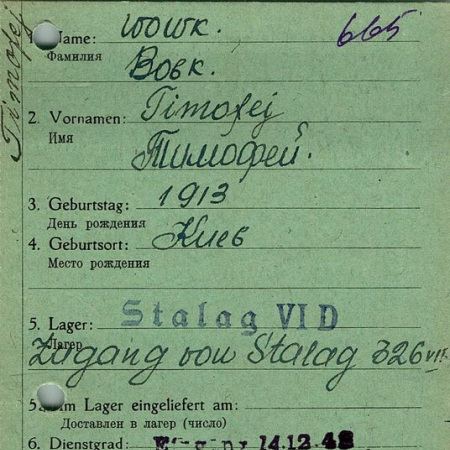 Timofej
1. Name: Wowk. 665
Фамилия Вовк.
2. Vornamen: Timofej
Имя Тимофей.
3. Geburtstag: 1913
День рождения
4. Geburtsort: Киев
Место рождения
5. Lager: Stalag VI D
Лагерь
Zugang von Stalag 326
Im Lager eingeliefert am:
Доставлен в лагер (число)
6. Dienstgrad: 14.12.42